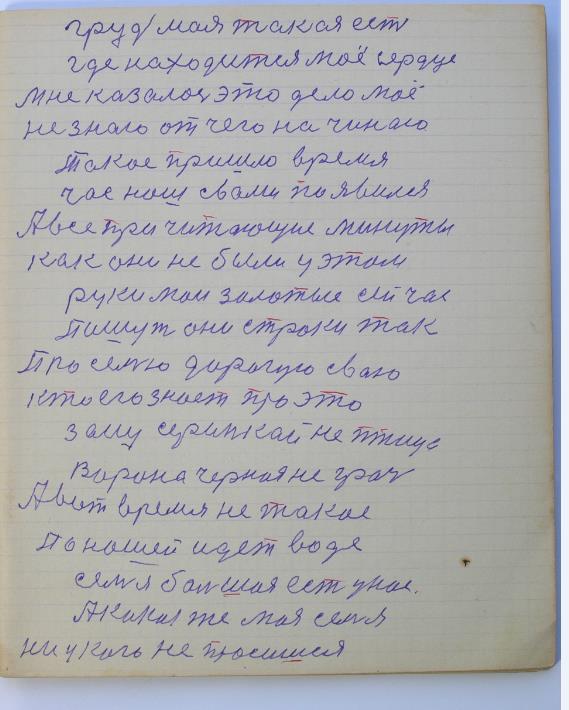 груд мая такая ест
где находится моё сердце
мне казалос это дело моё
не знаю от чего на чинаю
Такое пришло время
час наш свами появился
А все при читающие минуты
как они не были у этом
руки мои золотые сей час
Пишут они строки так
Про семю дорогую сваю
кто его знает про это
не птица
Ворона черная не грач
А вот время не такое
По нашей идет воде
семя болшая ест у нас.
А какая же моя семя
ни у кого не